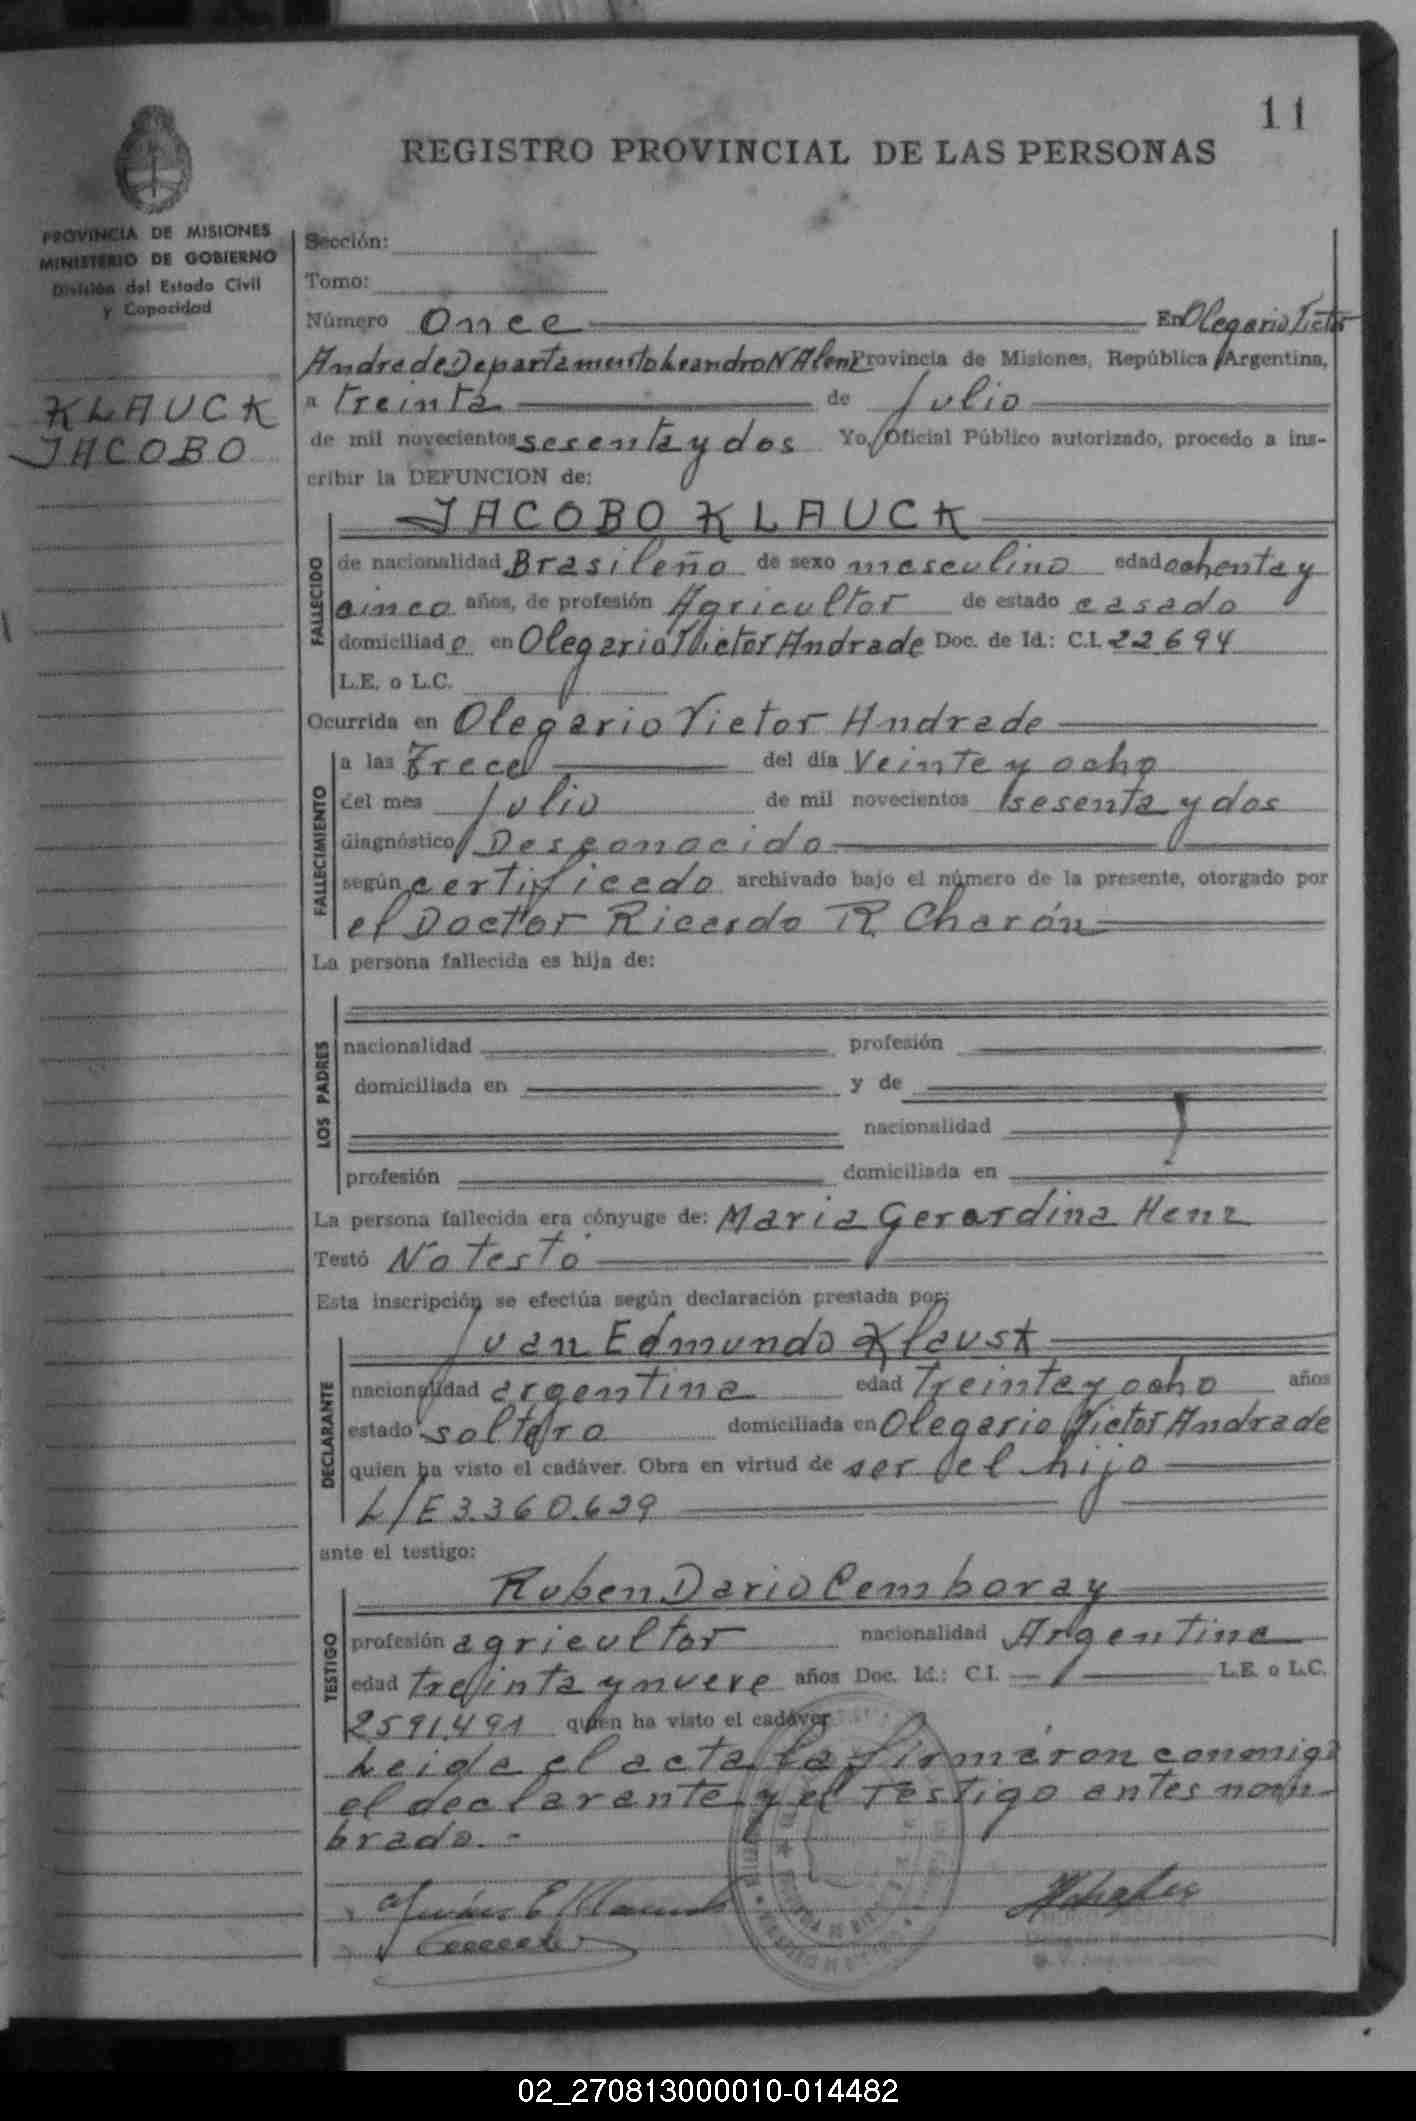 11
REGISTRO PROVINCIAL DE LAS PERSONAS
PROVINCIA DE MISIONES
MINISTERIO DE GOBIERNO
División del Estado Civil
y Capacidad
KLAUCK
JACOBO
Sección:
Tomo:
Número Once En Olegario Victor
Andrade Departamento Leandro N Alem Provincia de Misiones, República Argentina,
a treinta de Julio
de mil novecientos sesenta y dos Yo, Oficial Público autorizado, procedo a ins-
cribir la DEFUNCION de:
JACOBO KLAUCK
FALLECIDO
de nacionalidad Brasileño de sexo masculino edad ochenta y
cinco años, de profesión Agricultor de estado casado
domiciliado en Olegario Victor Andrade Doc. de Id.: C.I. 22694
L.E. o L.C.
Ocurrida en Olegario Victor Andrade
FALLECIMIENTO
a las Trece del día Veinte y ocho
del mes Julio de mil novecientos sesenta y dos
diagnóstico Desconocido
según certificado archivado bajo el número de la presente, otorgado por
el Doctor Ricardo R. Charón
La persona fallecida es hija de:
LOS PADRES
nacionalidad profesión
domiciliada en y de
nacionalidad
profesión domiciliada en
La persona fallecida era cónyuge de: Maria Gerardina Henz
Testó No testó
Esta inscripción se efectúa según declaración prestada por:
Juan Edmundo Klausk
DECLARANTE
nacionalidad argentina edad treinta y ocho años
estado soltero domiciliada en Olegario Victor Andrade
quien ha visto el cadáver. Obra en virtud de ser el hijo
L/E 3.360.629
ante el testigo:
Ruben Dario Cemboray
TESTIGO
profesión agricultor nacionalidad Argentina
edad treinta y nueve años Doc. Id.: C.I. L.E. o L.C.
2591.491 quien ha visto el cadáver
Leida el acta la firmáron conmigo
el declarante y el Testigo antes nom-
brado.-
Juán E Klauck
02_270813000010-014482